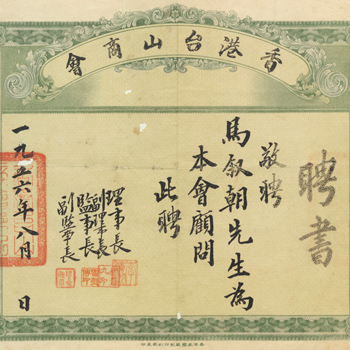 香港台山商會
聘書
敬聘
馬叙朝先生為
本會顧問
此聘
理事長
副理事長
監事長
副監事長
一九五六年八月 日